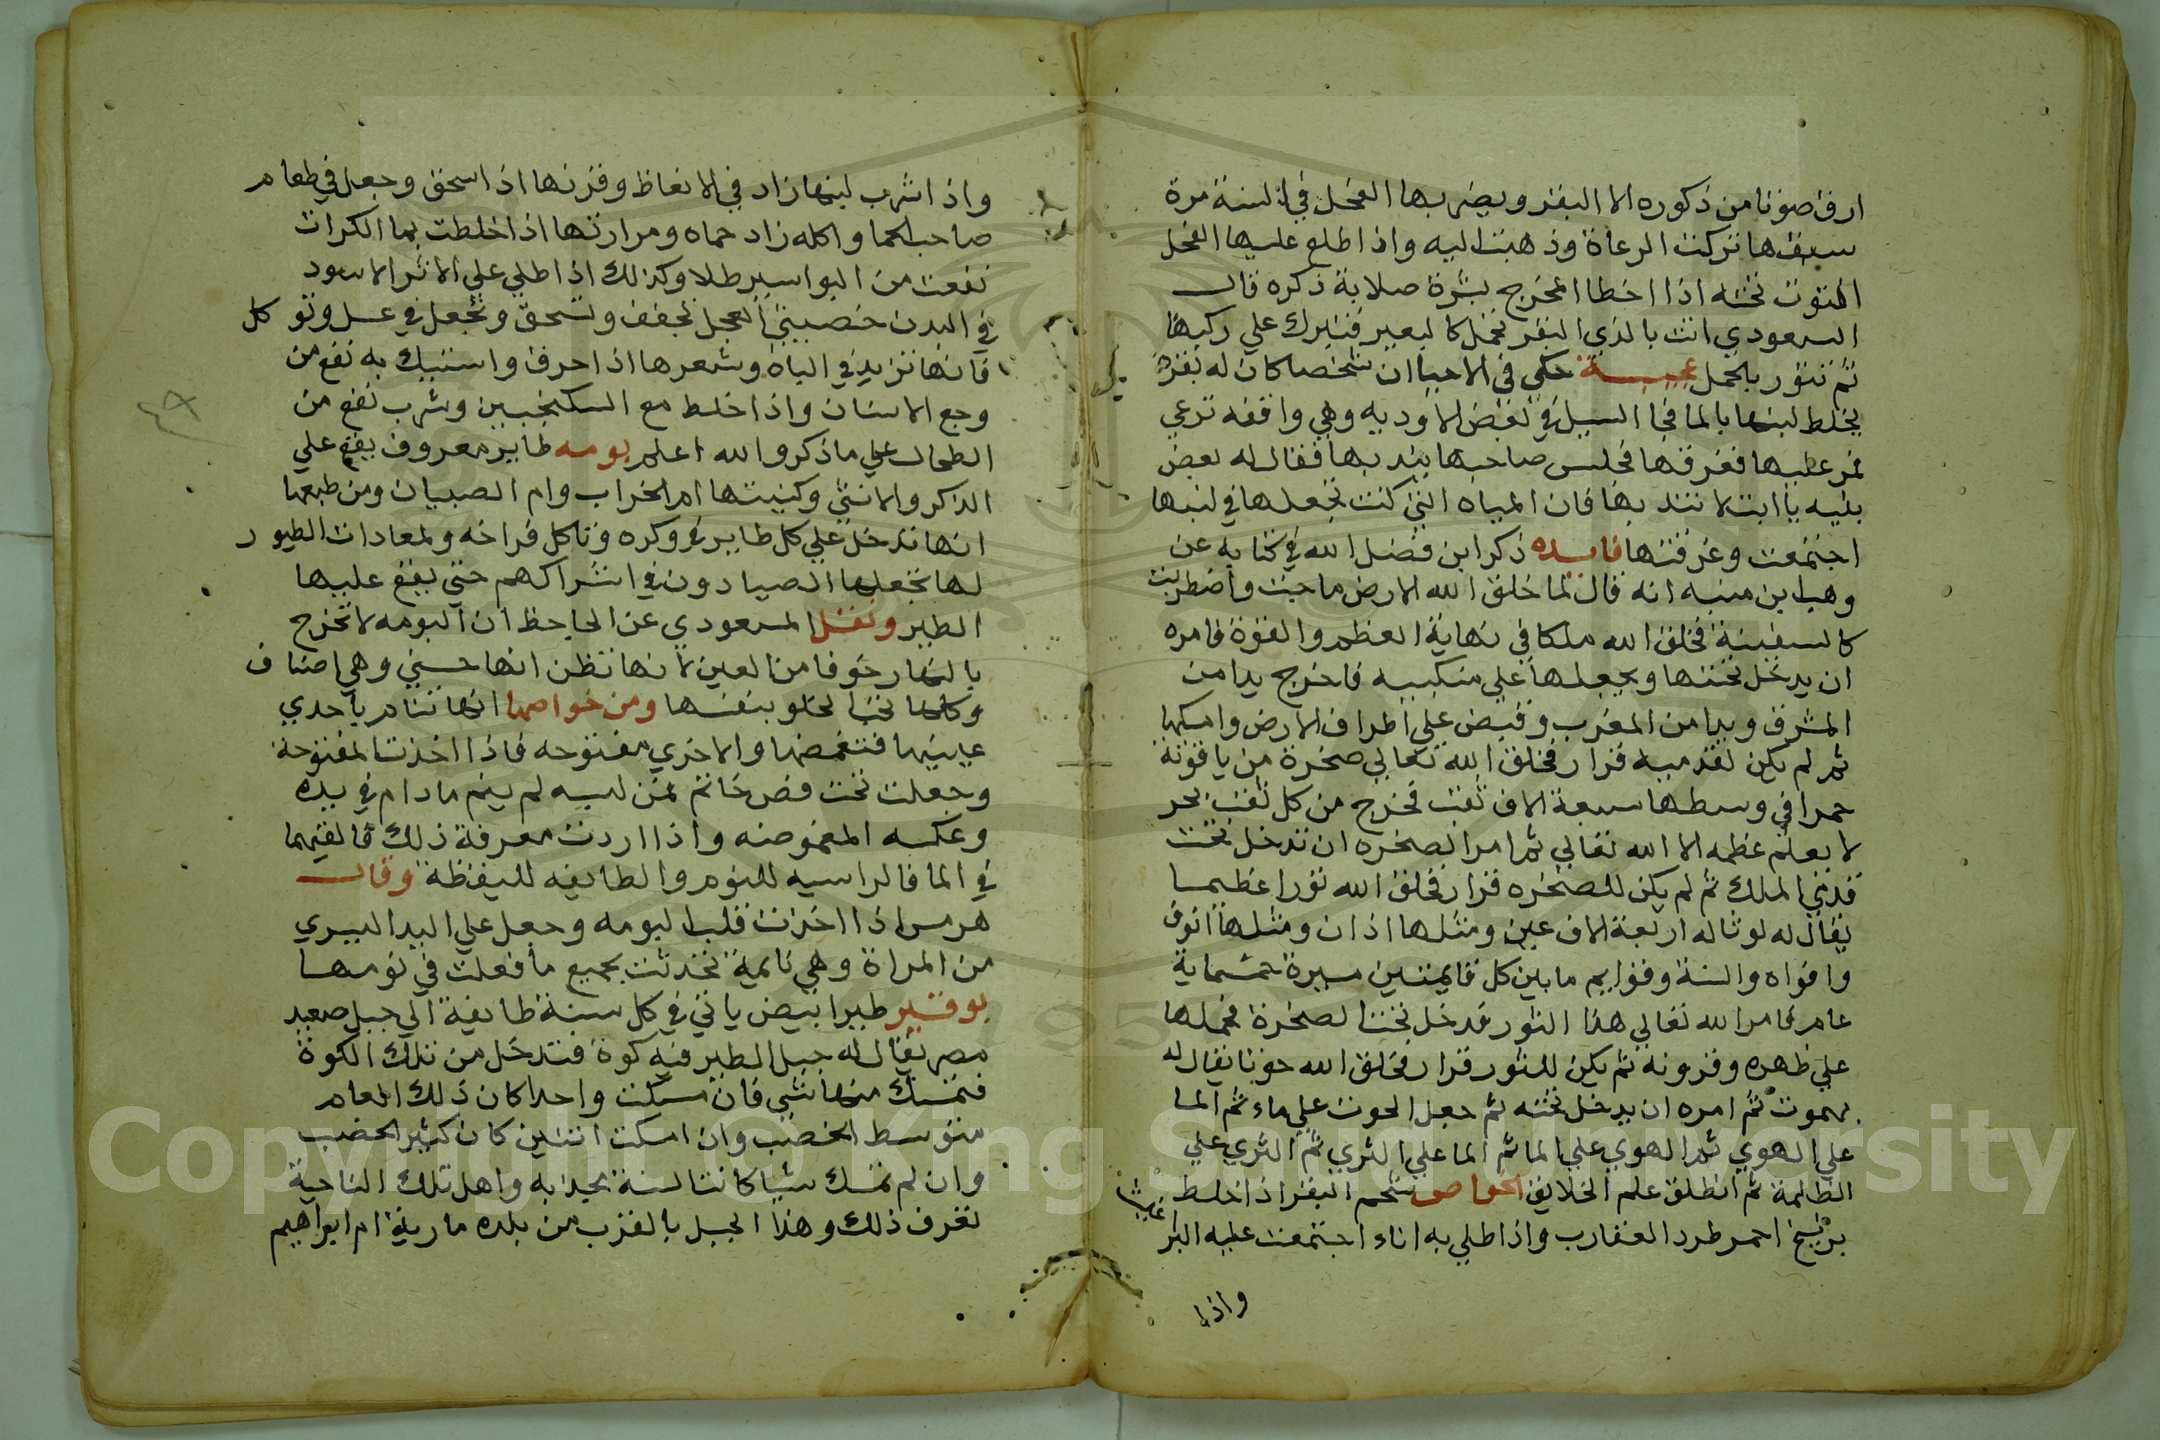 ارق صوتا من ذكوره الا البقر ويضربها الفحل في السنة مرة
سبقها تركت الرعاة وذهبت اليه واذا طلع عليها الفحل
التوت تحته اذا اخطا المخرج بشرة صلابة ذكره قال
المسعودي انت بالذي البقر تحمل كالبعير فتبرك علي ركبها
ثم تثور بالحمل عجيبة حكي في الاحيا ان شخصا كان له بقرة
يخلط لبنها بالما فجا السيل في بعض الاوديه وهي واقفه ترعي
فمر عليها فغرقها فجلس صاحبها يندبها فقال له بعض
بنيه يا ابت لا تندبها فان المياه التي كنت تجعلها في لبنها
اجتمعت وغرقتها فايده ذكر ابن فضل الله في كتابه عن
وهب بن منبه انه قال لما خلق الله الارض ماجت واضطربت
كالسفينة فخلق الله ملكا في نهاية العظم والقوة فامره
ان يدخل تحتها ويجعلها علي منكبيه فاخرج يدا من
المشرق ويدا من المغرب وقبض علي اطراف الارض وامسكها
ثم لم يكن لقدميه قرار فخلق الله تعالي صخرة من ياقوتة
حمرا في وسطها سبعة الاف ثقب فخرج من كل ثقب بحر
لا يعلم عظمه الا الله تعالي ثم امر الصخره ان تدخل تحت
قدمي الملك ثم لم يكن للصخره قرار فخلق الله ثورا عظيما
يقال له لوثا له اربعة الاف عين ومثلها اذان ومثلها انوف
وافواه والسنة وقوايم ما بين كل قايمتين مسيرة خمسماية
عام فامر الله تعالي هذا الثور فدخل تحت الصخرة فحملها
علي ظهره وقرونه ثم لم يكن للثور قرار فخلق الله حوتا يقال له
بهموت ثم امره ان يدخل تحته ثم جعل الحوت علي ماء ثم الما
علي الهوي ثم الهوي علي الما ثم الما علي الثري ثم الثري علي
الظلمة ثم انطلق علم الخلايق الخواص شحم البقر اذا خلط
بزرنيخ احمر طرد العقارب واذا طلي به اناء اجتمعت عليه البراغيث
واذا
واذا شرب لبنها زاد في الانعاظ وقرنها اذا سحق وجعل في طعام
صاحب الحما واكله زاد حماه ومرارتها اذا خلطت بما الكراث
نفعت من البواسير طلا وكذلك اذا طلي علي الاثر الاسود
في البدن خصيتي العجل تجفف وتسحق وتجعل في عسل وتوكل
فانها تزيد في الباه وشعرها اذا احرق واستيك به نفع من
وجع الاسنان واذا خلط مع السكنجبين وشرب نفع من
الطحال علي ما ذكر والله اعلم بومه طاير معروف يقع علي
الذكر والانثي وكنيتها ام الخراب وام الصبيان ومن طبعها
انها تدخل علي كل طاير في وكره وتاكل فراخه ولمعادات الطيور
لها تجعلها الصيادون في اشراكهم حتي يقع عليها
الطير ونقل المسعودي عن الجاحظ ان البومه لا تخرج
بالنهار خوفا من العين لانها تظن انها حسني وهي اصناف
وكلها تحب الخلو بنفسها ومن خواصها انها تنام باحدي
عينيها فتغمضها والاخري مفتوحه فاذا اخذت المفتوحة
وجعلت تحت فص خاتم فمن لبسه لم ينم ما دام في يده
وعكسه المغموضه واذا اردت معرفة ذلك فالقيهما
في الما فالراسيه للنوم والطايفه لليقظة وقال
هرمس اذا اخذت قلب البومه وجعل علي اليد اليسري
من المراة وهي نايمة تحدثت بجميع ما فعلت في نومها
بوقير طير ابيض ياتي في كل سنة طايفة الي جبل صعيد
مصر يقال له جبل الطير فيه كوة فتدخل من تلك الكوة
فتمسك منها شي فان مسكت واحدا كان ذلك العام
متوسط الخصب وان امسكت اثنين كان كثير الخصب
وان لم تمسك شيا كانت السنة مجدبه واهل تلك الناحية
تعرف ذلك وهذا الجبل بالقرب من بلده مارية ام ابراهيم
٤٩
Copyright © King Saud University